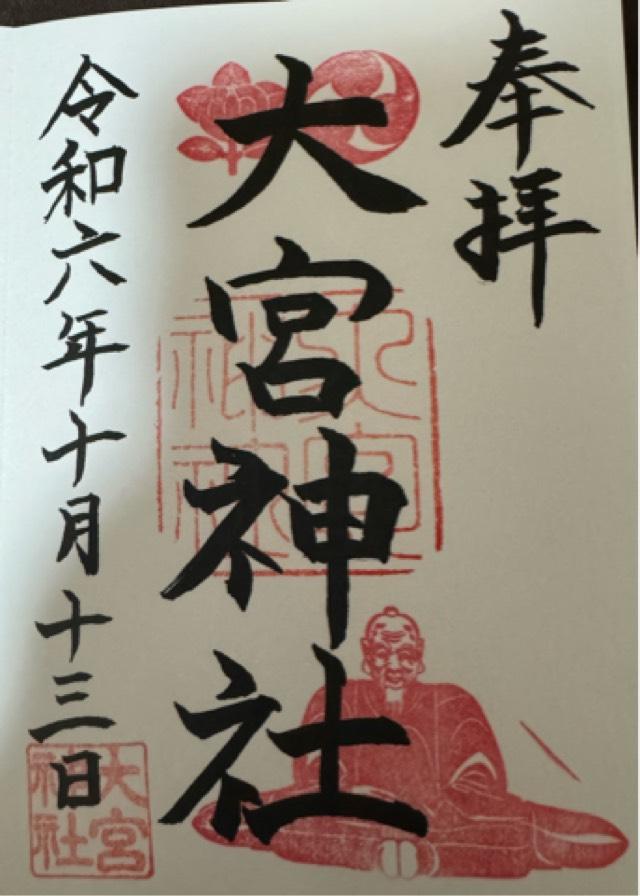 奉拝
大宮神社
大宮神社
令和六年十月十三日
大宮神社